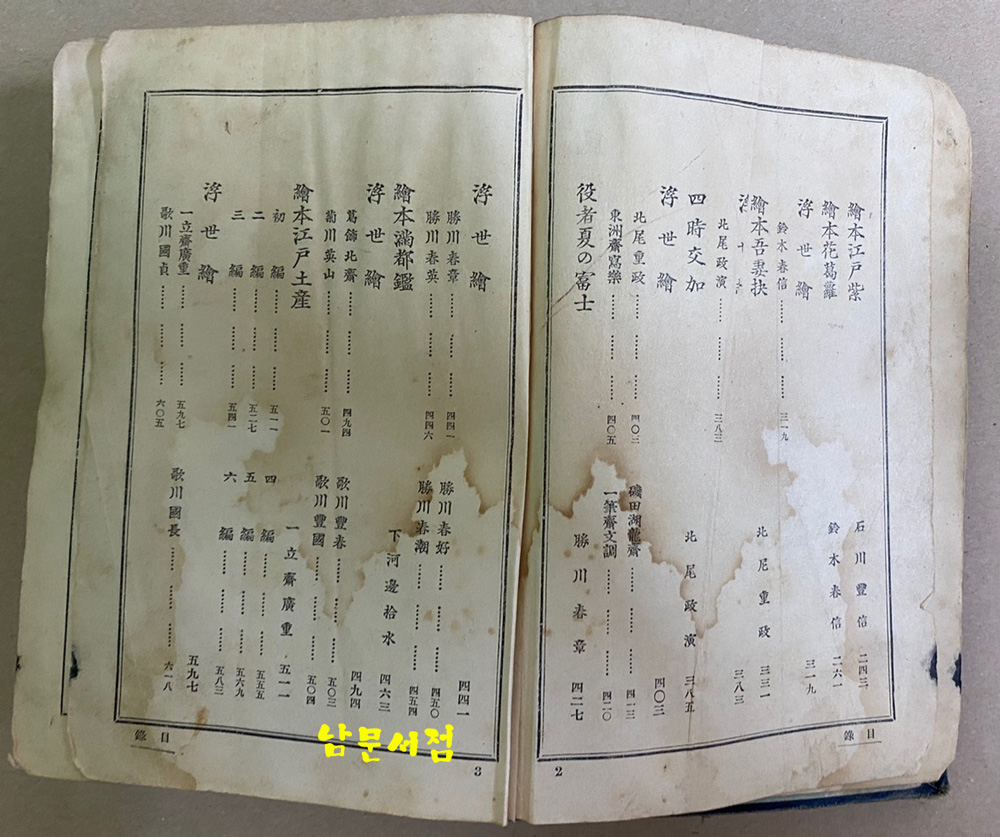 繪本江戶紫 石川豐信 二四三
繪本花葛蘿 鈴木春信 二六一
浮世繪 三一九
鈴木春信 …… …… …… 三一九
繪本吾妻抉 北尾重政 三三一
三八三
北尾政演 …… …… …… 三八三
四時交加 北尾政演 三八五
浮世繪 四〇三
北尾重政 …… …… 四〇三 磯田湖龍齋 …… …… 四一三
東洲齋寫樂 …… …… 四〇五 一筆齋文調 …… …… 四二〇
役者夏の富士 勝川春章 四二七
目錄
2
浮世繪 四四一
勝川春章 …… …… …… 四四一 勝川春好 …… …… …… 四五〇
勝川春英 …… …… …… 四四六 勝川春潮 …… …… …… 四五四
繪本滿都鑑 下河邊拾水 四六三
浮世繪 四九四
葛飾北齋 …… …… …… 四九四 歌川豐春 …… …… …… 五〇三
菊川英山 …… …… …… 五〇一 歌川豐國 …… …… …… 五〇四
繪本江戶土產 一立齋廣重 五一一
初編 …… …… …… 五一一 四編 …… …… …… 五五五
二編 …… …… …… 五二七 五編 …… …… …… 五六九
三編 …… …… …… 五四一 六編 …… …… …… 五八三
浮世繪 五九七
一立齋廣重 …… …… …… 五九七
歌川國貞 …… …… …… 六〇五 歌川國長 …… …… …… 六一八
目錄
3
남문서점